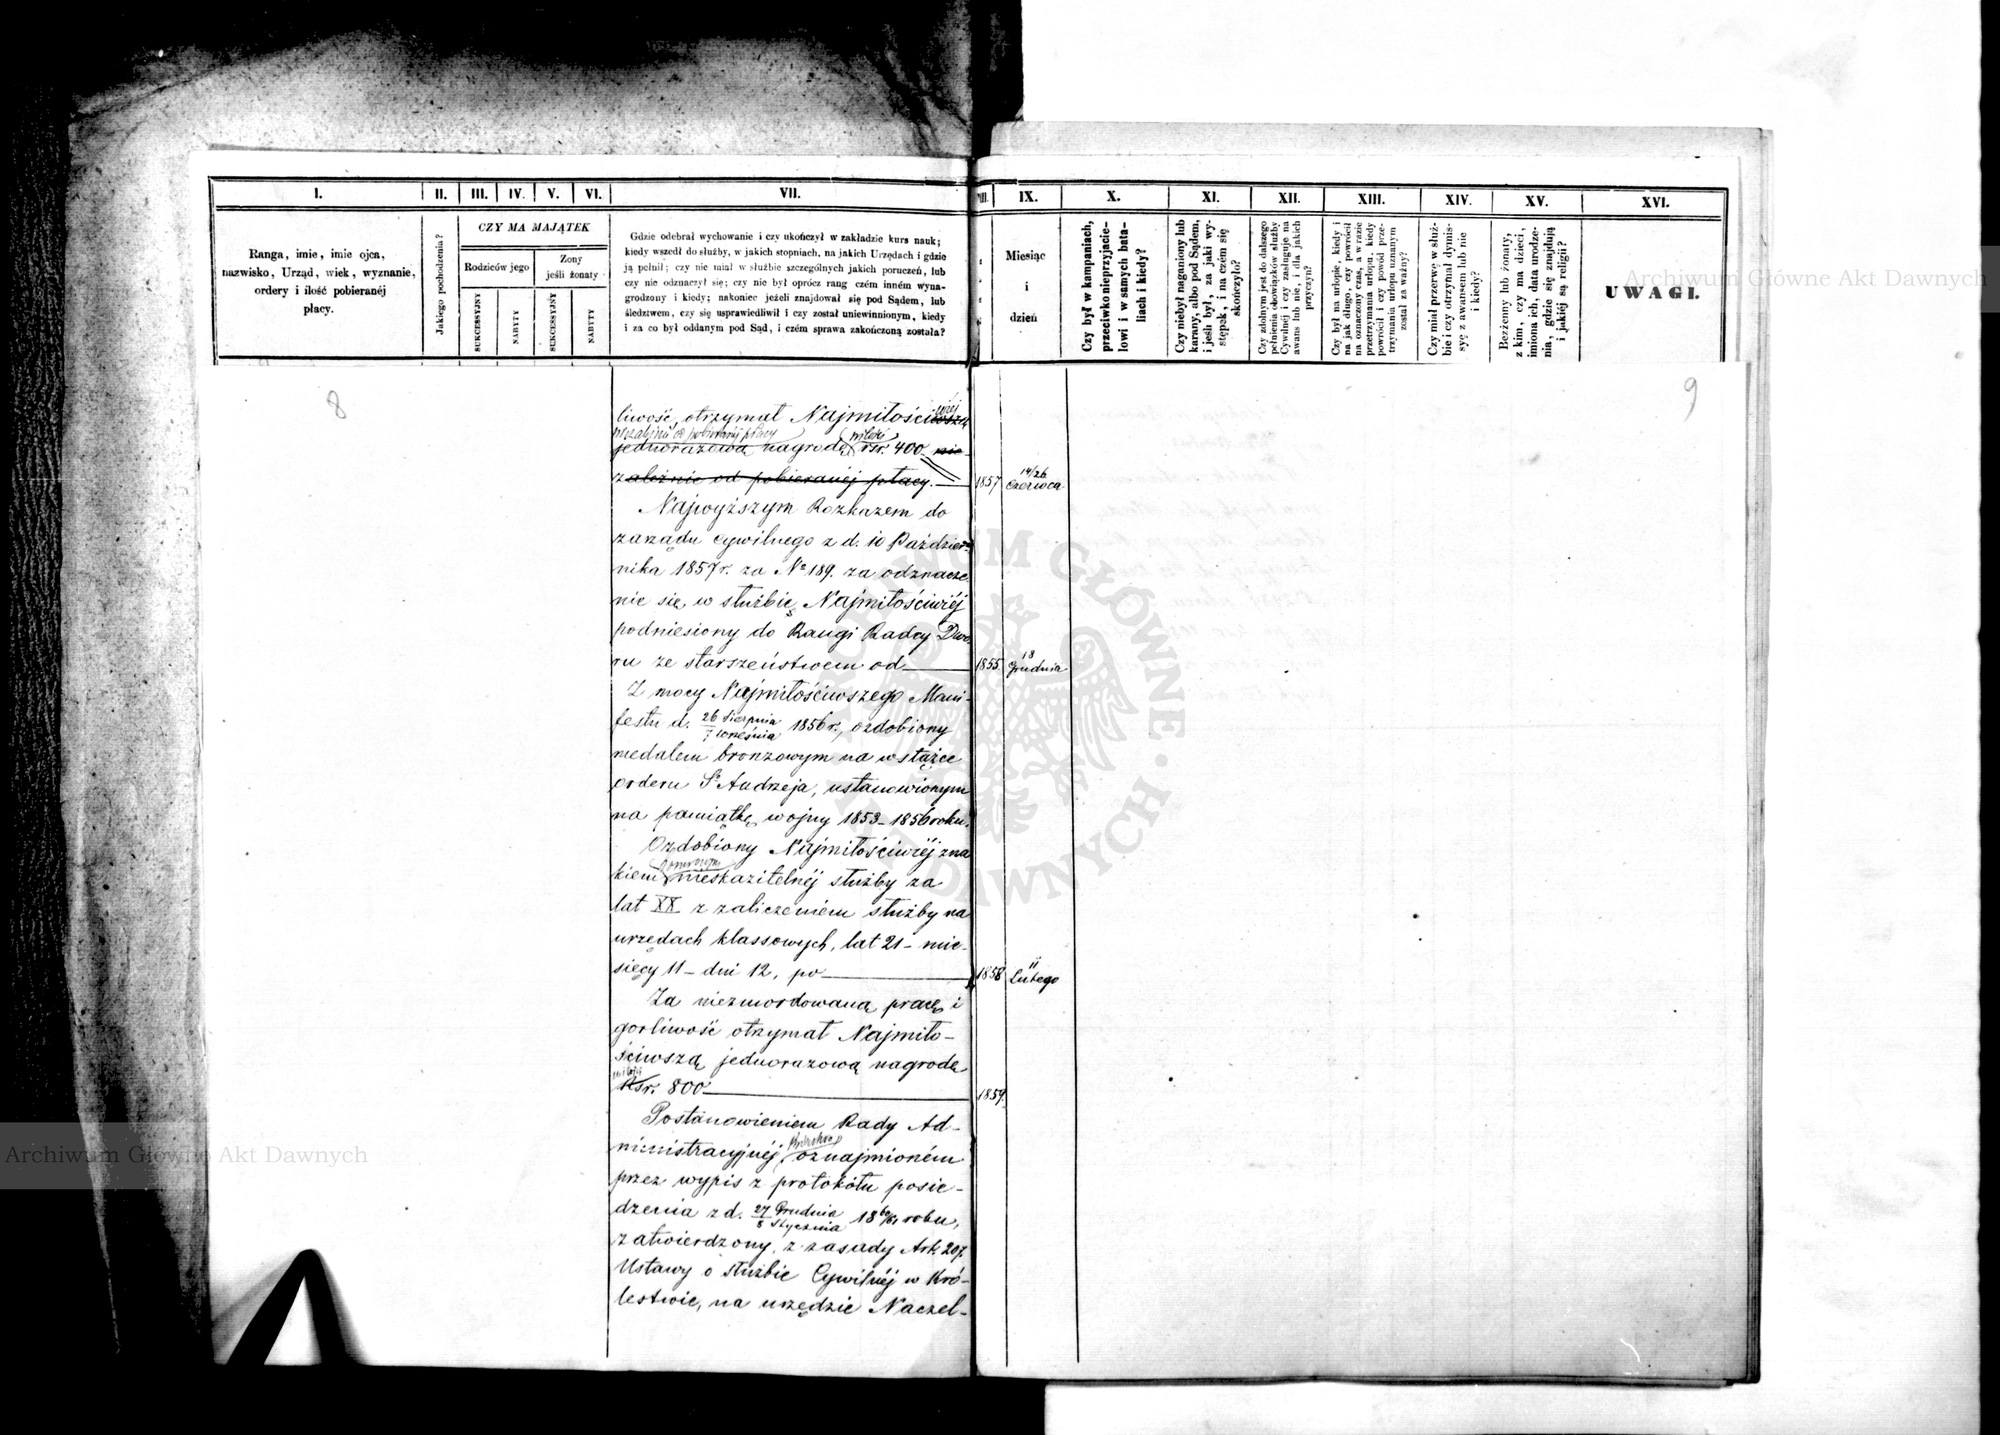 I.
Ranga, imie, imie ojca,
nazwisko, Urząd, wiek, wyznanie,
ordery i ilość pobieranéj
płacy.
II.
Jakiego pochodzenia?
III. IV. V. VI.
CZY MA MAJĄTEK
Rodziców jego
Żony
jeśli żonaty
SUKCESSYJNY
NABYTY
SUKCESSYJNY
NABYTY
VII.
Gdzie odebrał wychowanie i czy ukończył w zakładzie kurs nauk;
kiedy wszedł do służby, w jakich stopniach, na jakich Urzędach i gdzie
ją pełnił; czy nie miał w służbie szczególnych jakich poruczeń, lub
czy nie odznaczył się; czy nie był oprócz rang czém inném wyna-
grodzony i kiedy; nakoniec jeżeli znajdował się pod Sądem, lub
śledztwem, czy się usprawiedliwił i czy został uniewinnionym, kiedy
i za co był oddanym pod Sąd, i czém sprawa zakończoną została?
IX.
Miesiąc
i
dzień
X.
Czy był w kampaniach,
przeciwko nieprzyjacie-
lowi i w samych bata-
liach i kiedy?
XI.
Czy niebył naganiony lub
karany, albo pod Sądem,
i jeśli był, za jaki wy-
stępek, i na czém się
skończyło?
XII.
Czy zdolnym jest do dalszego
pełnienia obowiązków służby
Cywilnéj i czy zasługuje na
awans lub nie, i dla jakich
przyczyn?
XIII.
Czy był na urlopie, kiedy i
na jak długo, czy powrócił
na oznaczony czas, a w razie
przetrzymania urlopu, kiedy
powrócił i czy powód prze-
trzymania urlopu uznanym
został za ważny?
XIV.
Czy miał przerwę w służ-
bie i czy otrzymał dymis-
syę z awansem lub nie
i kiedy?
XV.
Bezżenny lub żonaty,
z kim, czy ma dzieci,
imiona ich, data urodze-
nia, gdzie się znajdują
i jakiéj są religii?
XVI.
UWAGI.
8
9
liwość, otrzymał Najmiłościwszą
wiéj
niezależnie od pobieranéj płacy
jednorazową nagrodę rsr. 400 nie
zależnie od pobieranéj płacy. 1857 14/26 Czerwca
Najwyższym Rozkazem do
zarządu cywilnego z d. 10 Paździer-
nika 1857 r. za No 189. za odznacze-
nie się w służbie, Najmiłościwiéj
podniesiony do Rangi Radcy Dwo-
ru ze starszeństwem od 1855. 18 Grudnia
Z mocy Najmiłościwszego Mani-
festu d. 26 Sierpnia / 7 Września 1856 r., ozdobiony
medalem bronzowym na wstążce
orderu St Andrzeja, ustanowionym
na pamiątkę wojny 1853-1856 roku.
Ozdobiony Najmiłościwiéj zna
kiem nieskazitelnéj służby za
lat XX z zaliczeniem służby na
urzędach klassowych, lat 21- mie-
sięcy 11- dni 12, po 1858 11 Lutego
Za niezmordowaną pracę i
gorliwość otrzymał Najmiło-
ściwszą jednorazową nagrodę
Rsr. 800 1859.
Postanowieniem Rady Ad-
ministracyjnéj oznajmioném
przez wypis z protokółu posie-
dzenia z d. 27 Grudnia / 8 Stycznia 1860/61 roku,
zatwierdzony, z zasady Art. 207.
Ustawy o służbie Cywilnéj w Kró-
lestwie, na urzędzie Naczel-
Archiwum Główne Akt Dawnych
Archiwum Główne Akt Dawnych
ARCHIWUM GŁÓWNE AKT DAWNYCH